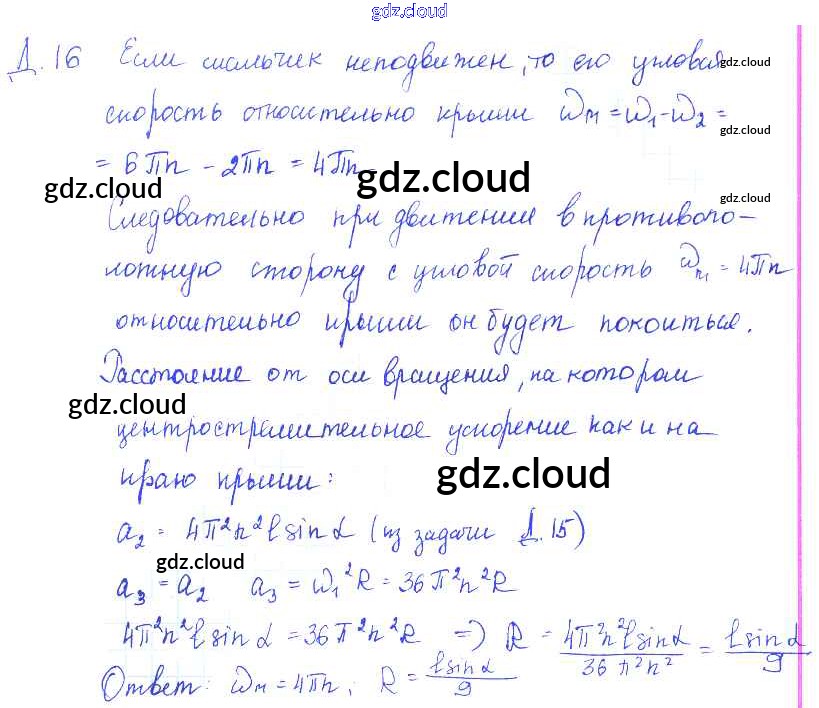 gdz.cloud
Д.16 Если мальчик неподвижен, то его угловая gdz.cloud
скорость относительно крыши ω_M = ω_1 - ω_2 =
gdz.cloud
= 6πn - 2πn = 4πn
gdz.cloud gdz.cloud gdz.cloud
Следовательно при движении в противопо-
ложную сторону с угловой скорость ω_M = 4πn
относительно крыши он будет покоиться.
Расстояние от оси вращения, на котором
gdz.cloud
центростремительное ускорение как и на
gdz.cloud
краю крыши:
a_2 = 4π²n²ℓsinα (из задачи Д.15)
gdz.cloud
a_3 = a_2 a_3 = ω_1²R = 36π²n²R
4π²n²ℓsinα = 36π²n²R ⇒ R = 4π²n²ℓsinα / 36π²n² = ℓsinα / 9
Ответ: ω_M = 4πn; R = ℓsinα / 9